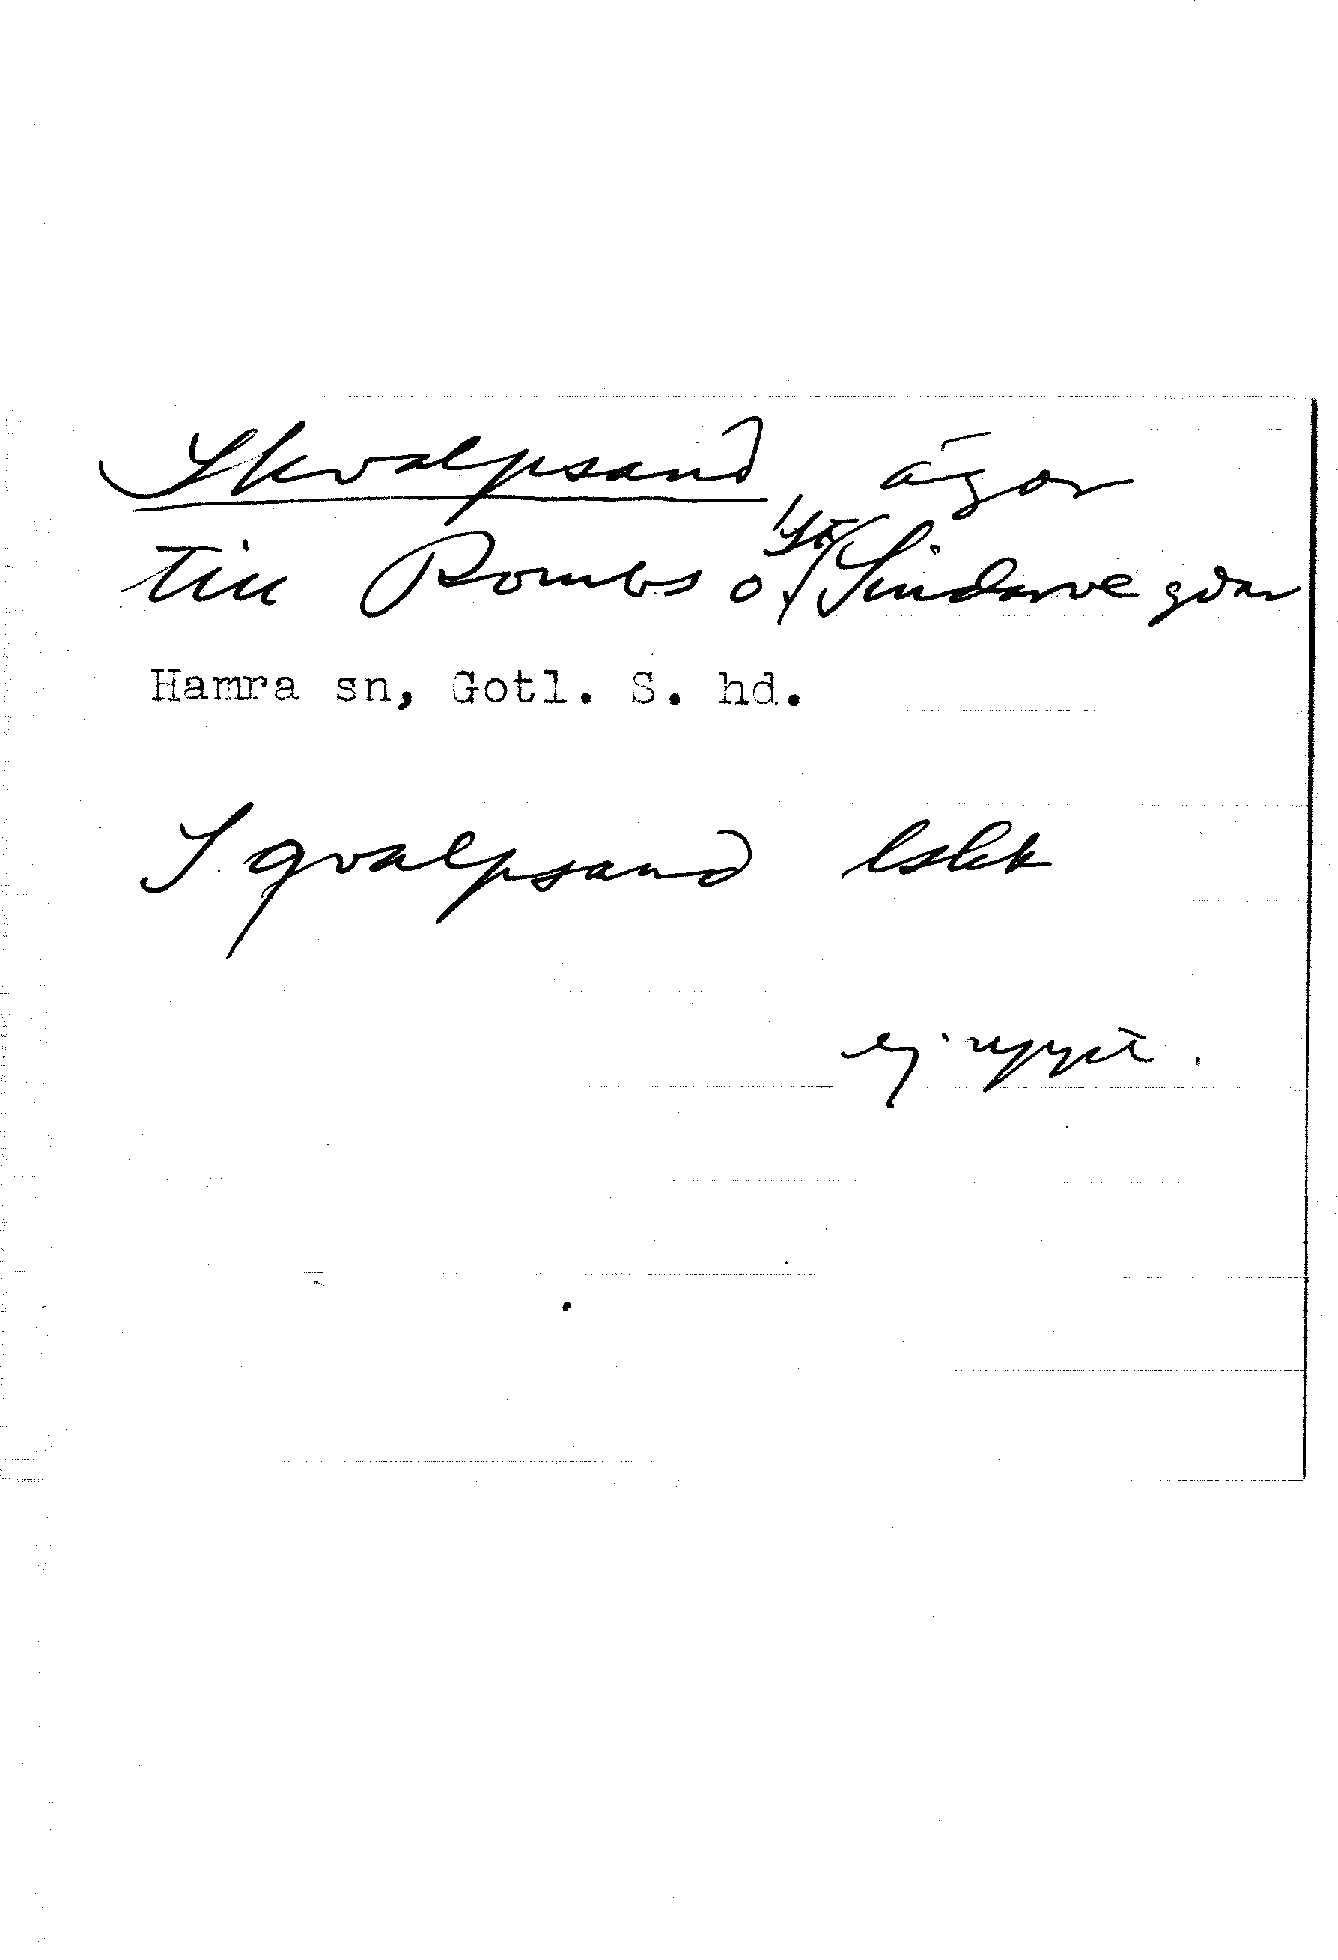 Skvalpsand, ägor
till Bombs o. St Sindarve gdar
Hamra sn, Gotl. S. hd.
Sqvalpsand lskk
ej uppt.